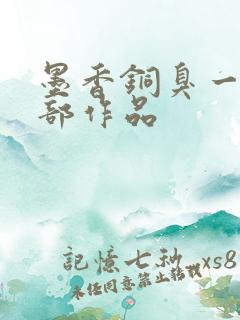 墨香銅臭一
部作品
記憶七秒_xs8
未任同意禁止转载